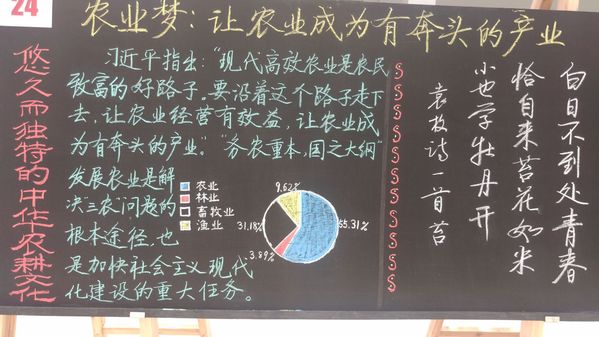 24
农业梦：让农业成为有奔头的产业
悠久而独特的中华农耕文化
习近平指出：“现代高效农业是农民
致富的好路子，要沿着这个路子走下
去，让农业经营有效益，让农业成
为有奔头的产业。”“务农重本，国之大纲”
发展农业是解
决“三农”问题的
根本途径，也
是加快社会主义现代
化建设的重大任务。
农业
林业
畜牧业
渔业
9.62%
55.31%
31.18%
3.89%
白日不到处青春
恰自来苔花如米
小也学牡丹开
袁枚诗一首苔